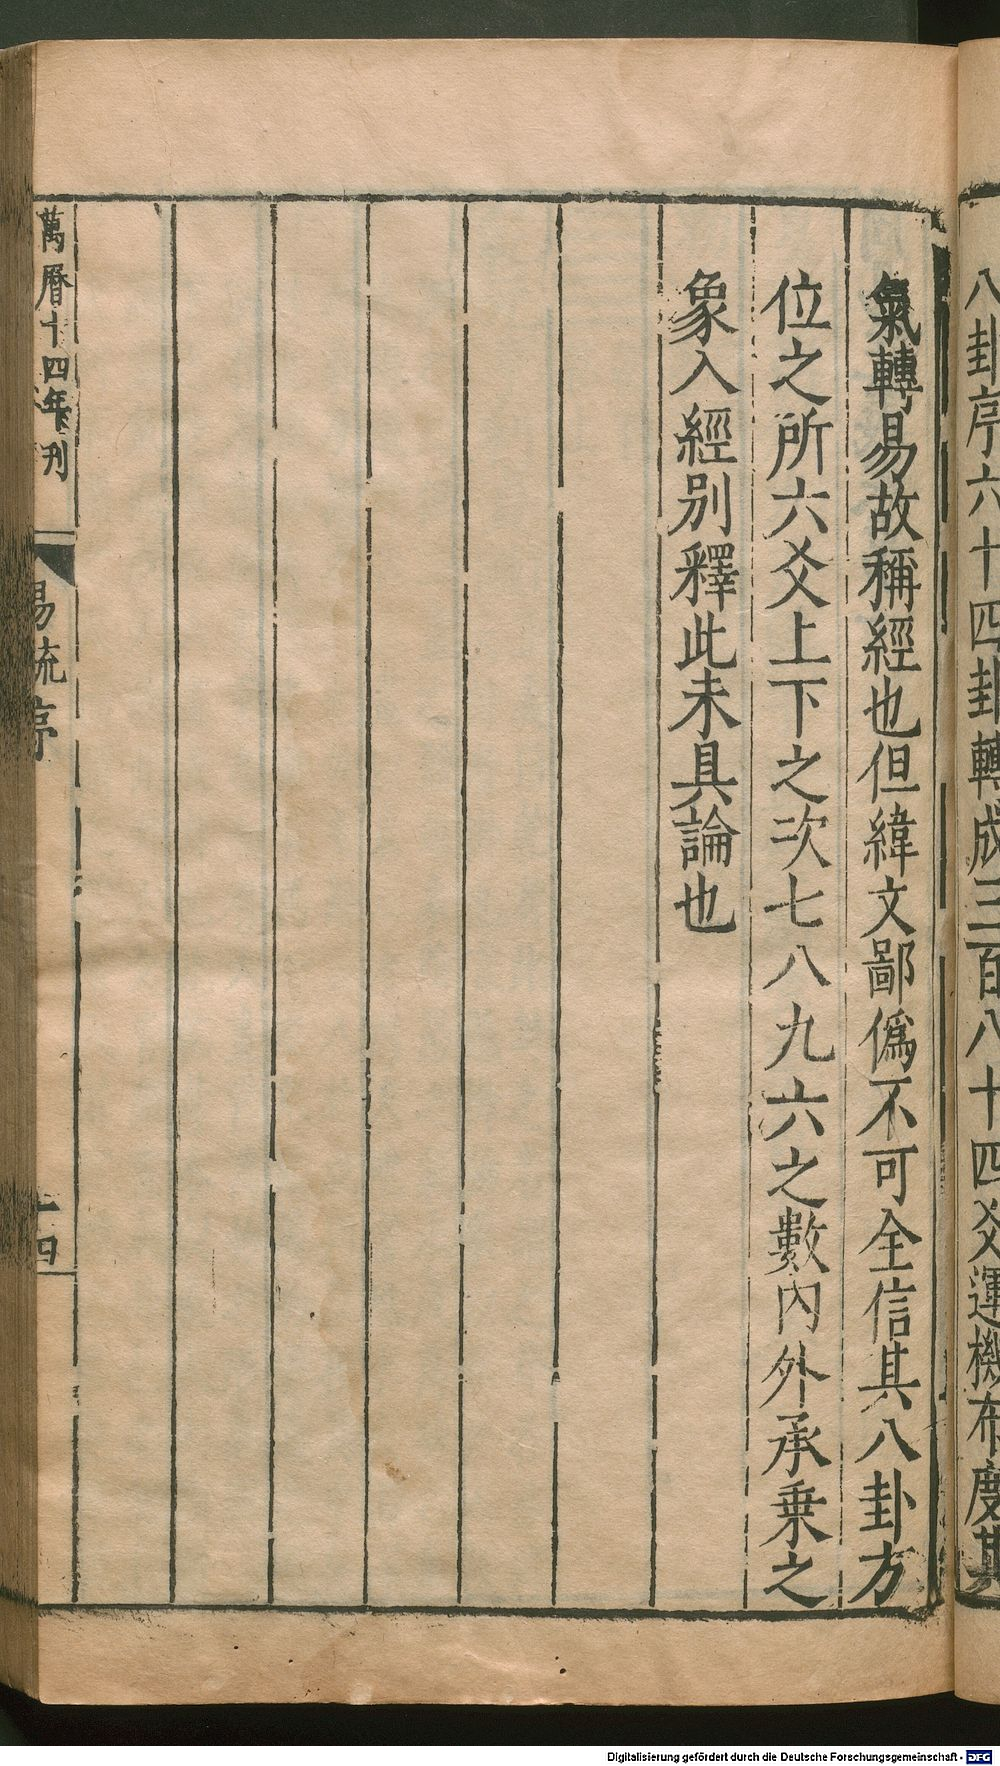 八卦序六十四卦轉成三百八十四爻運機布度其
氣轉易故稱經也但緯文鄙僞不可全信其八卦方
位之所六爻上下之次七八九六之數內外承乗之
象入經別釋此未具論也
萬曆十四年刊
易疏序
十四
Digitalisierung gefördert durch die Deutsche Forschungsgemeinschaft - DFG